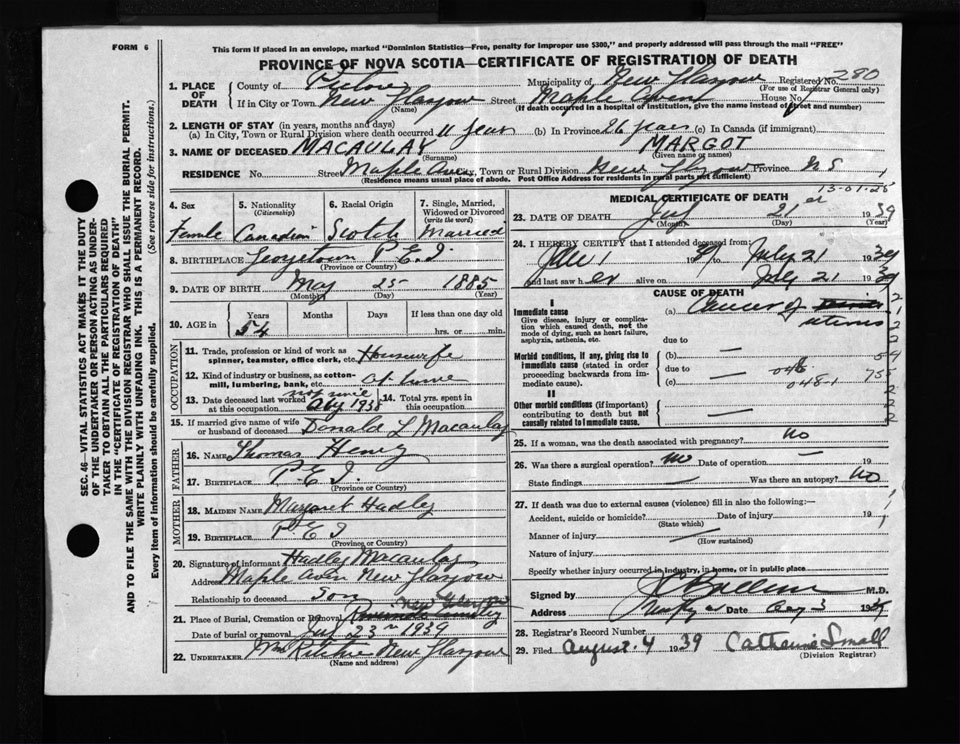 FORM 6
This form if placed in an envelope, marked "Dominion Statistics—Free, penalty for improper use $300," and properly addressed will pass through the mail "FREE"
PROVINCE OF NOVA SCOTIA—CERTIFICATE OF REGISTRATION OF DEATH
SEC. 46—VITAL STATISTICS ACT MAKES IT THE DUTY
OF THE UNDERTAKER OR PERSON ACTING AS UNDER-
TAKER TO OBTAIN ALL THE PARTICULARS REQUIRED
IN THE "CERTIFICATE OF REGISTRATION OF DEATH"
AND TO FILE THE SAME WITH THE DIVISION REGISTRAR WHO SHALL ISSUE THE BURIAL PERMIT.
WRITE PLAINLY WITH UNFADING INK. THIS IS A PERMANENT RECORD.
Every item of information should be carefully supplied. (See reverse side for instructions.)
1. PLACE OF DEATH
County of Pictou Municipality of New Glasgow Registered No. 280
(For use of Registrar General only)
If in City or Town New Glasgow Street Maple Aven House No.
(Name) (If death occurred in a hospital of institution, give the name instead of street and number)
2. LENGTH OF STAY (in years, months and days)
(a) In City, Town or Rural Division where death occurred 11 years (b) In Province 26 years (c) In Canada (if immigrant)
3. NAME OF DECEASED MACAULAY MARGOT
(Surname) (Given name or names)
RESIDENCE No. Street Maple Ave City, Town or Rural Division New Glasgow Province N S
(Residence means usual place of abode. Post Office Address for residents in rural parts not sufficient)
4. Sex Female
5. Nationality (Citizenship) Canadian
6. Racial Origin Scotch
7. Single, Married, Widowed or Divorced (write the word) Married
8. BIRTHPLACE Georgetown P E I
(Province or Country)
9. DATE OF BIRTH May 25 1885
(Month) (Day) (Year)
10. AGE in Years Months Days If less than one day old
54 hrs. or min.
OCCUPATION
11. Trade, profession or kind of work as spinner, teamster, office clerk, etc. Housewife
12. Kind of industry or business, as cotton-mill, lumbering, bank, etc. at home
13. Date deceased last worked at this occupation not since 1938
14. Total yrs. spent in this occupation
15. If married give name of wife or husband of deceased Donald L Macaulay
FATHER
16. NAME Thomas Henry
17. BIRTHPLACE P. E. I
(Province or Country)
MOTHER
18. MAIDEN NAME Margaret Hadley
19. BIRTHPLACE P. E. I
(Province or Country)
20. Signature of informant Hadley Macaulay
Address Maple Aven New Glasgow
Relationship to deceased Son
21. Place of Burial, Cremation or Removal New Glasgow
Date of burial or removal July 23 1939
22. UNDERTAKER Ritchie New Glasgow
(Name and address)
MEDICAL CERTIFICATE OF DEATH
13-01-25
23. DATE OF DEATH July 21st 1939
(Month) (Day) (Year)
24. I HEREBY CERTIFY that I attended deceased from:
June 1 1939 to July 21 1939
and last saw her alive on July 21 1939
CAUSE OF DEATH
I
Immediate cause (a) Cancer of uterus
Give disease, injury or complication which caused death, not the mode of dying, such as heart failure, asphyxia, asthenia, etc.
due to
Morbid conditions, if any, giving rise to immediate cause (stated in order proceeding backwards from immediate cause).
(b)
due to
(c) 048-1
II
Other morbid conditions (if important) contributing to death but not causally related to immediate cause.
2
1
2
2
54
755
2
2
2
25. If a woman, was the death associated with pregnancy? no
26. Was there a surgical operation? no Date of operation — 19
State findings — Was there an autopsy? no
27. If death was due to external causes (violence) fill in also the following:—
Accident, suicide or homicide? Date of injury 19
(State which)
Manner of injury
(How sustained)
Nature of injury
Specify whether injury occurred in industry, in home, or in public place
Signed by M.D.
Address Date Aug 3 1939
28. Registrar's Record Number
29. Filed August 4 1939 Catharine Small
(Division Registrar)